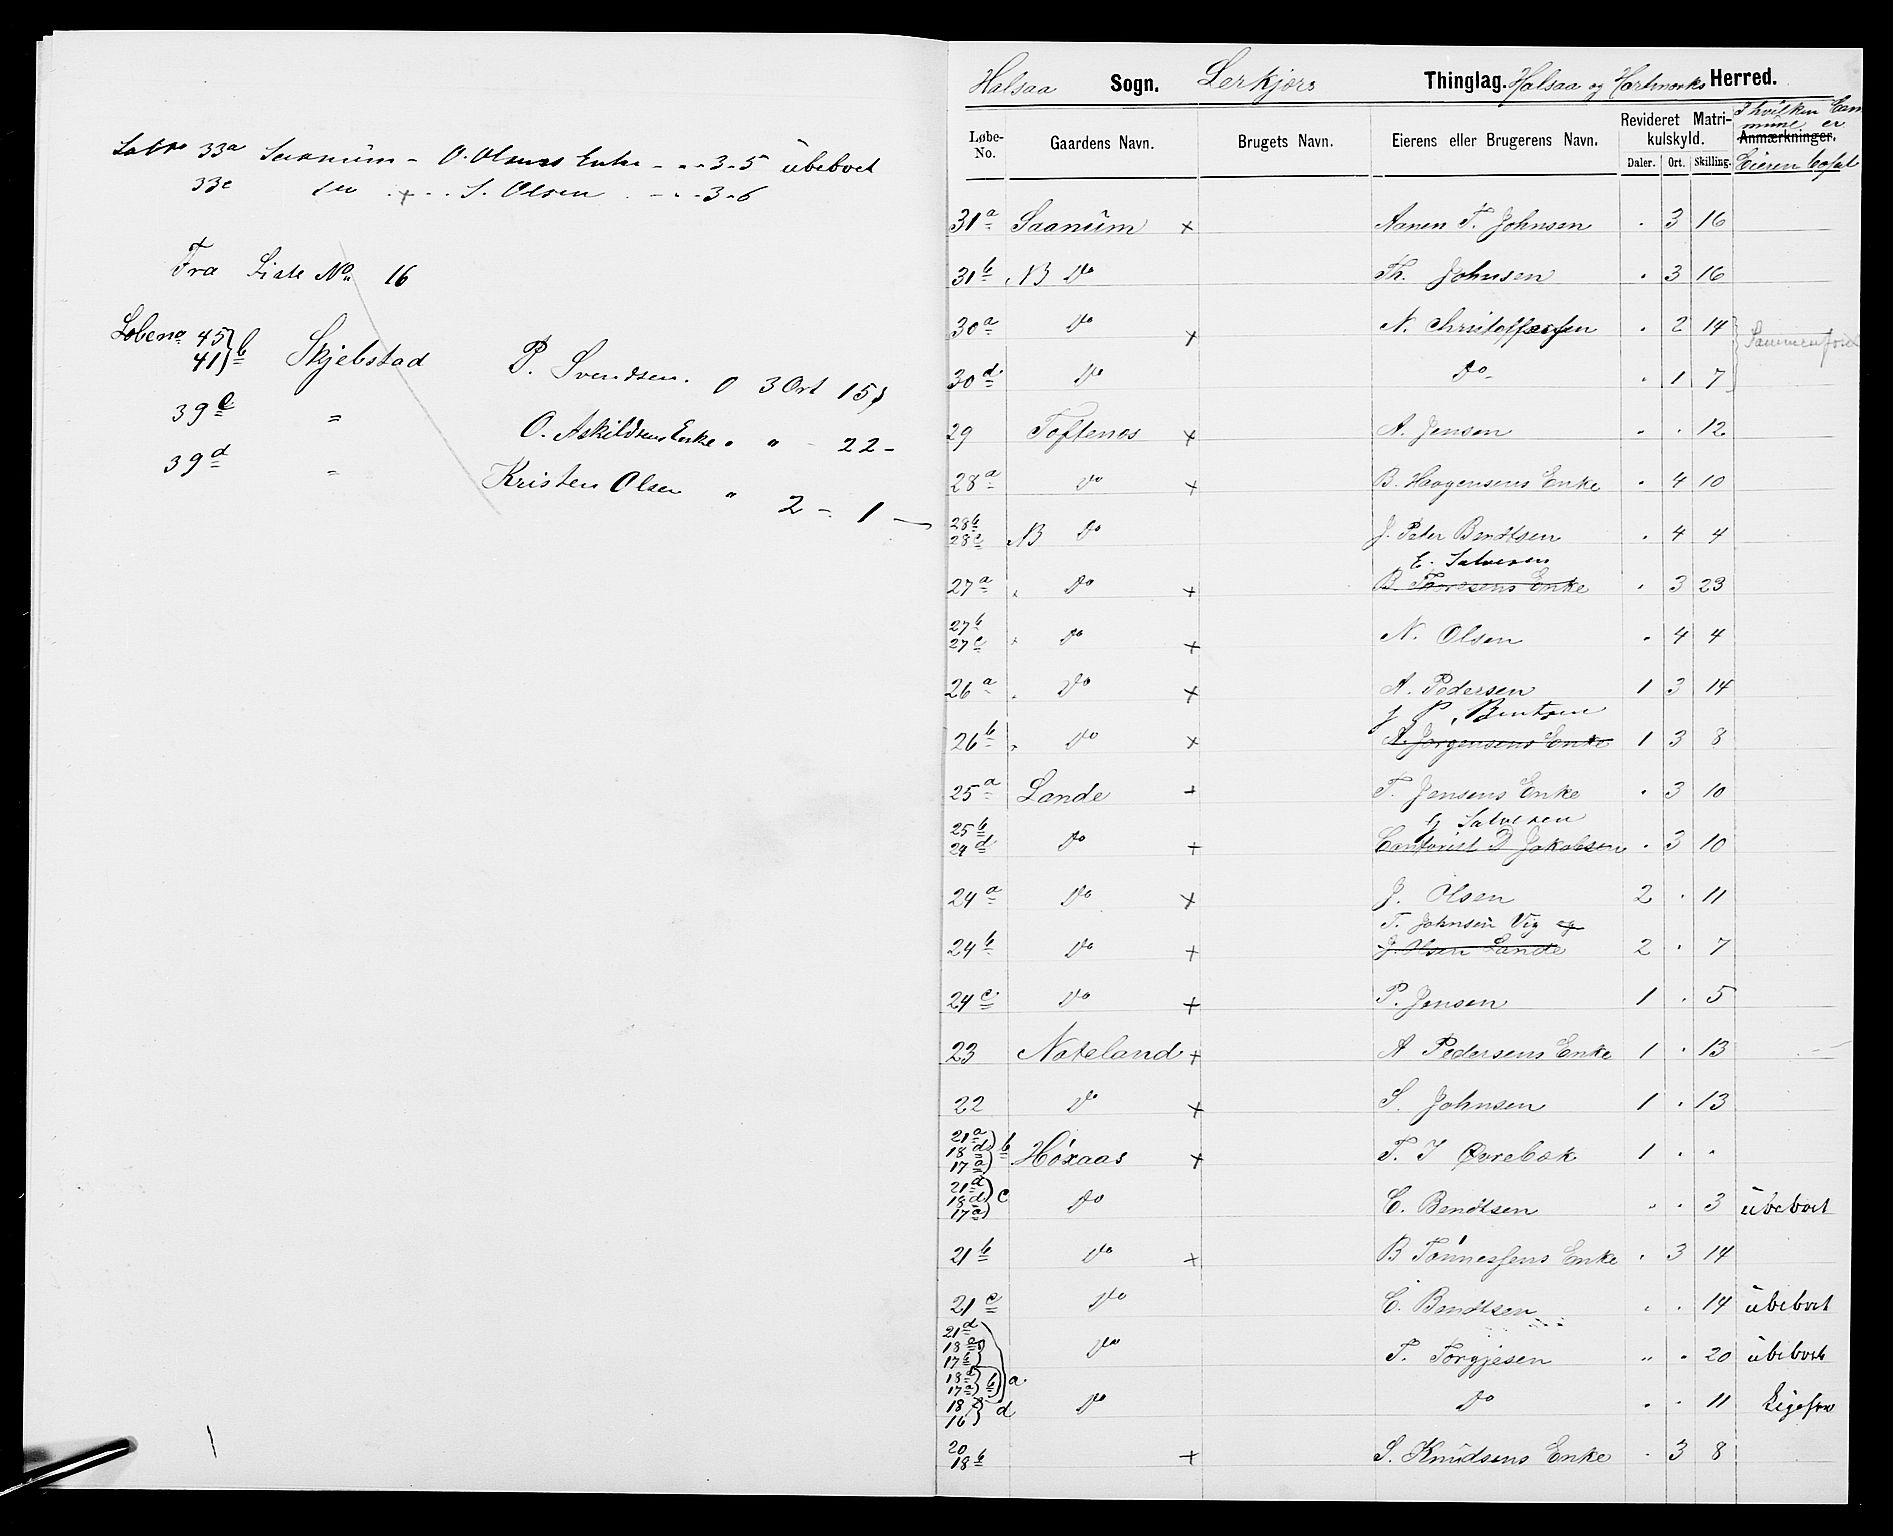 Løbno 33a Saanum - O. Olsens Enke - " - 3 - 5 ubeboet
33c do + S. Olsen - " - 3 - 6
Fra Liste No 16
Løbeno 45 } b Skjebstad P. Svendsen. 0 3 Ort 15 ß
41
39 c " O. Askildsens Enke " " - 22 -
39 d " Kristen Olsen " 2 - 1 -
Halsaa Sogn. Lerkjærs Thinglag. Halsaa og Hartmarks Herred.
Løbe-No. Gaardens Navn. Brugets Navn. Eierens eller Brugerens Navn. Revideret Matrikulskyld. Daler. Ort. Skilling. Anmærkninger. I hvilken Commune er Eieren bosat
31 a Saanum + Aanen T. Johnsen . 3 16
31 b NB Do Th. Johnsen . 3 16
30 a Do + N. Christoffersen . 2 14
30 d Do Do . 1 7
29 Toftenes + A. Jensen . . 12
28 a Do + B. Haagensens Enke . 4 10
28 b
28 c NB Do J. Peter Bendtsen . 4 4
E. Salvesen
27 a " Do + B. Toresens Enke . 3 23
27 b
27 c " Do + N. Olsen . 4 4
26 a " Do + A. Pedersen 1 3 14
J. P. Bentsen
26 b " Do + A. Jørgensens Enke 1 3 8
25 a Lande + T. Jensens Enke . 3 10
G Salvesen
25 b
24 d Do + D Jakobsen . 3 10
24 a Do + J. Olsen 2 . 11
T. Johnsen Vig og
24 b Do + J. Olsen Lande 2 . 7
24 c Do + P. Jensen 1 . 5
23 Nateland + A Pedersens Enke 1 . 13
22 Do + S. Johnsen 1 . 13
21 a
18 d } b Høxaas + T. J Øvrebæk 1 . .
17 a
21 d
18 d } c Do C. Bendtsen . . 3 ubeboet
17 a
21 b Do + B Tønnessens Enke . 3 14
21 c Do C. Bendtsen . . 14 ubeboet
21 d
18 c Do T. Torgjesen " . 20 ubeboet
17 b
18 a
17 a } b } a
18
16 } d Do Do . . 11 Ligesaa
20
18 b + S. Knudsens Enke . 3 8